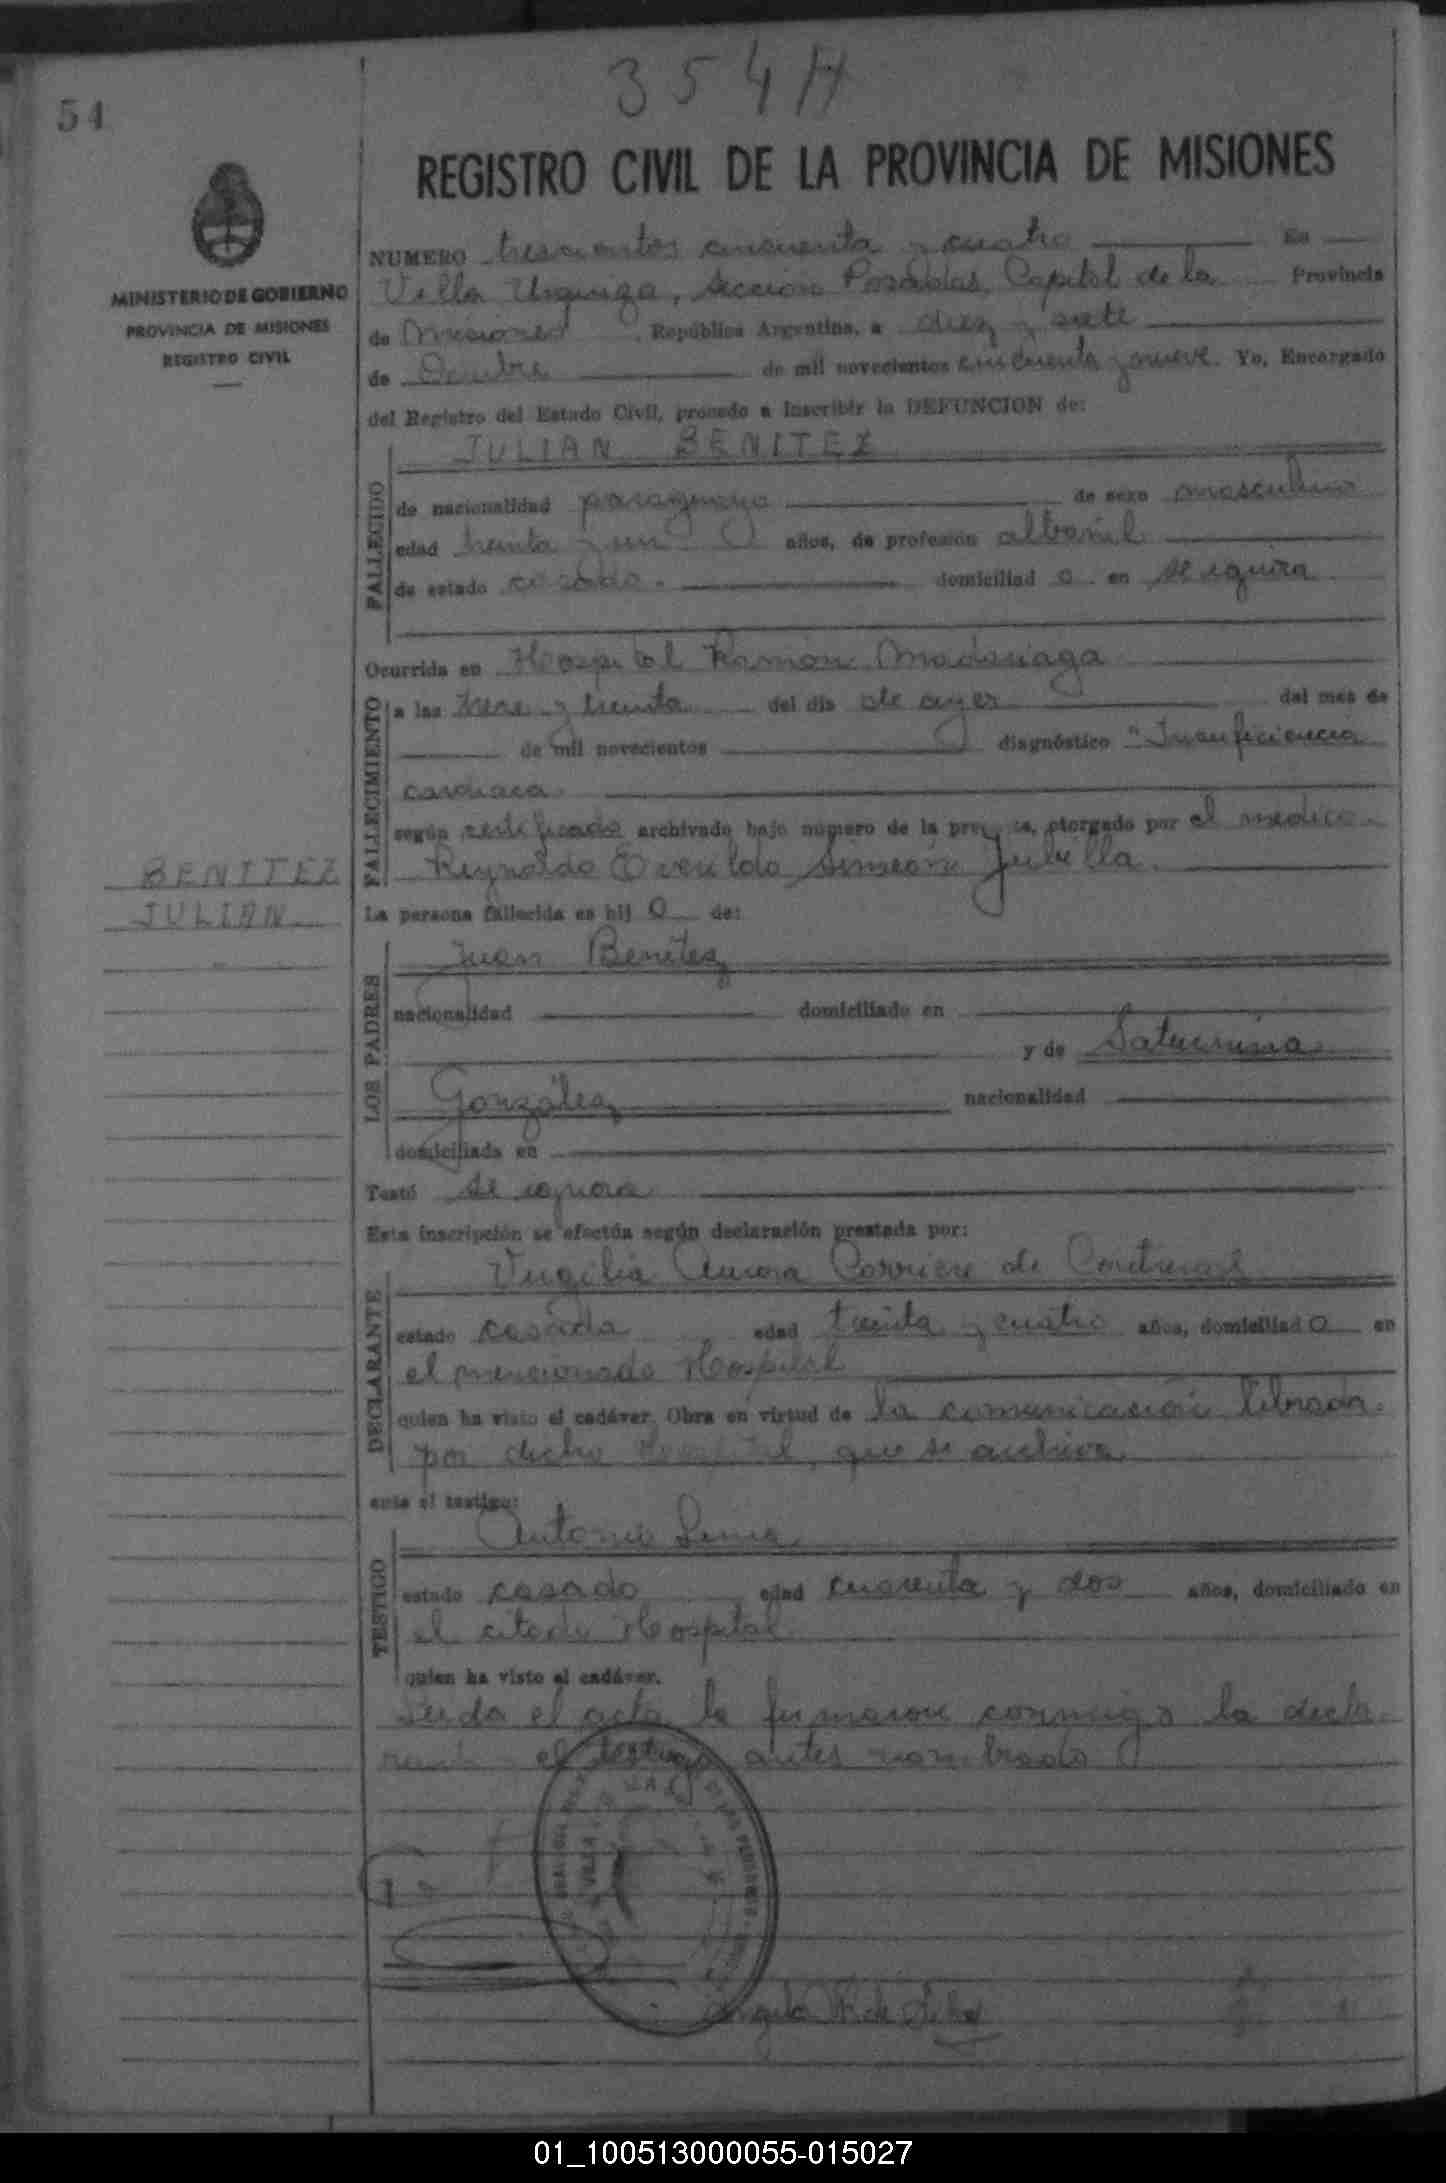 354 H
54
REGISTRO CIVIL DE LA PROVINCIA DE MISIONES
MINISTERIO DE GOBIERNO
PROVINCIA DE MISIONES
REGISTRO CIVIL
NUMERO trescientos cincuenta y cuatro En
Villa Urquiza, sección Posadas, Capital de la Provincia
de Misiones República Argentina, a diez y siete
de Octubre de mil novecientos cincuenta y nueve. Yo, Encargado
del Registro del Estado Civil, procedo a inscribir la DEFUNCION de:
JULIAN BENITEZ
FALLECIDO
de nacionalidad paraguaya de sexo masculino
edad treinta y un años, de profesión albañil
de estado casado. domiciliad o en se ignora
Ocurrida en Hospital Ramón Madariaga
FALLECIMIENTO
a las trece y treinta del día de ayer del mes de
de mil novecientos diagnóstico "Insuficiencia
cardiaca.
según certificado archivado bajo número de la otorgado por el medico
Reynaldo Simeón
BENITEZ
JULIAN
La persona fallecida es hij o de:
LOS PADRES
Juan Benitez
nacionalidad domiciliado en
y de Saturnina
González nacionalidad
domiciliada en
Testó se ignora
Esta inscripción se efectúa según declaración prestada por:
DECLARANTE
Virgilia Aurora de Contreras
estado casada edad treinta y cuatro años, domiciliad o en
el mencionado Hospital
quien ha visto el cadáver. Obra en virtud de la comunicación librada
por dicho Hospital, que se archiva
ante el testigo:
TESTIGO
Antonio
estado casado edad cuarenta y dos años, domiciliado en
el citado Hospital
quien ha visto el cadáver.
Leida el acta la firmaron conmigo la decla-
rante y el testigo antes nombrado
VILLA
01_100513000055-015027